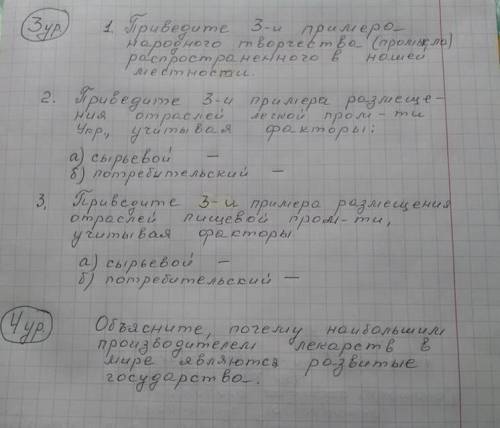 3 ур. 1. Приведите 3-и примера
народного творчества (промысла)
распространенного в нашей
местности.
2. Приведите 3-и примера размеще-
ния отраслей легкой пром-ти
Укр., учитывая факторы:
а) сырьевой —
б) потребительский —
3. Приведите 3-и примера размещения
отраслей пищевой пром-ти,
учитывая факторы
а) сырьевой —
б) потребительский —
4 ур. Объясните, почему наибольшим
производителем лекарств в
мире являются развитые
государства.